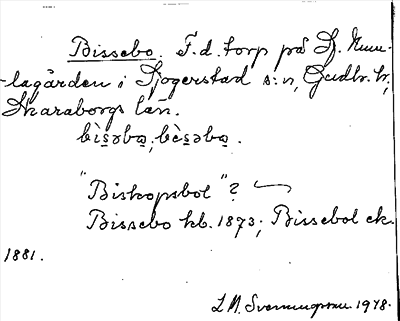 Bissebo. F.d. torp på Sj. Num-
lagården i Sjogerstad s:n, Gudh. h;
Skaraborgs län.
bìs̠əbo̠; bès̠əbo̠.
"Biskopsbol"?
Bissebo kb. 1873; Bissebol ek.
1881.
L M. Svenungsson 1978.